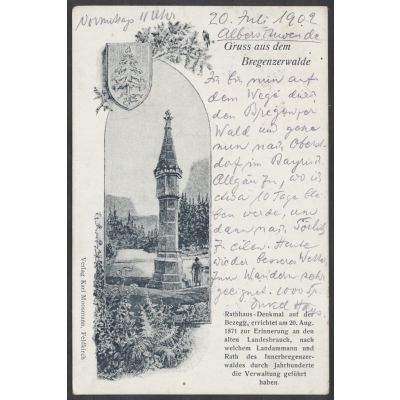 Vormittags 11 Uhr
20. Juli 1902
Alberschwende
Gruss aus dem
Bregenzerwalde
bin nun auf
dem Wege durch
den Bregenzer
Wald und gehe
nun nach Oberst-
dorf im Bayrisch
Allgäu, wo ich
etwa 10 Tage blei-
ben werde, um
dann nach
zu eilen. Heute
wieder besseres Wetter
zum Wandern sehr
geeignet. 1000
Onkel
Rathhaus-Denkmal auf der
Bezegg, errichtet am 20. Aug.
1871 zur Erinnerung an den
alten Landesbrauch, nach
welchem Landammann und
Rath des Innerbregenzer-
waldes durch Jahrhunderte
die Verwaltung geführt
haben.
Verlag Karl Moosmann, Feldkirch